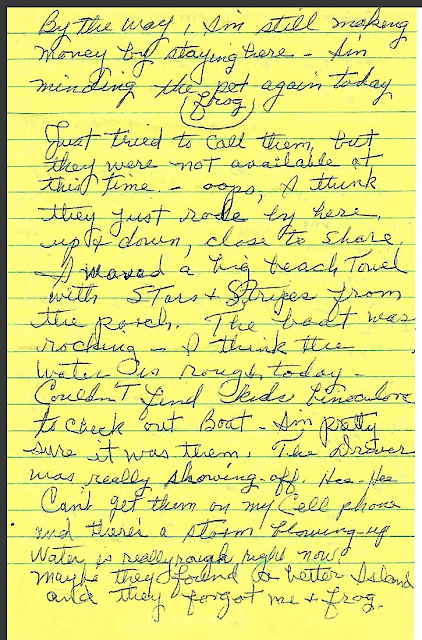 By the way, I'm still making
money by staying here - I'm
minding the pet again today
(frog)
Just tried to call them, but
they were not available at
this time. - oops, I think
they just rode by here,
up & down, close to shore.
I waved a big beach Towel
with STars + Stripes from
the porch. The boat was
rocking - I think the
water is rough today -
Couldn't find kids binoculars
to check out Boat - I'm pretty
sure it was them. The Driver
was really showing-off. Hee-Hee
Can't get them on my Cell phone
and there's a storm blowing-up
Water is really rough right now.
Maybe they found a better Island
and they forgot me + frog.